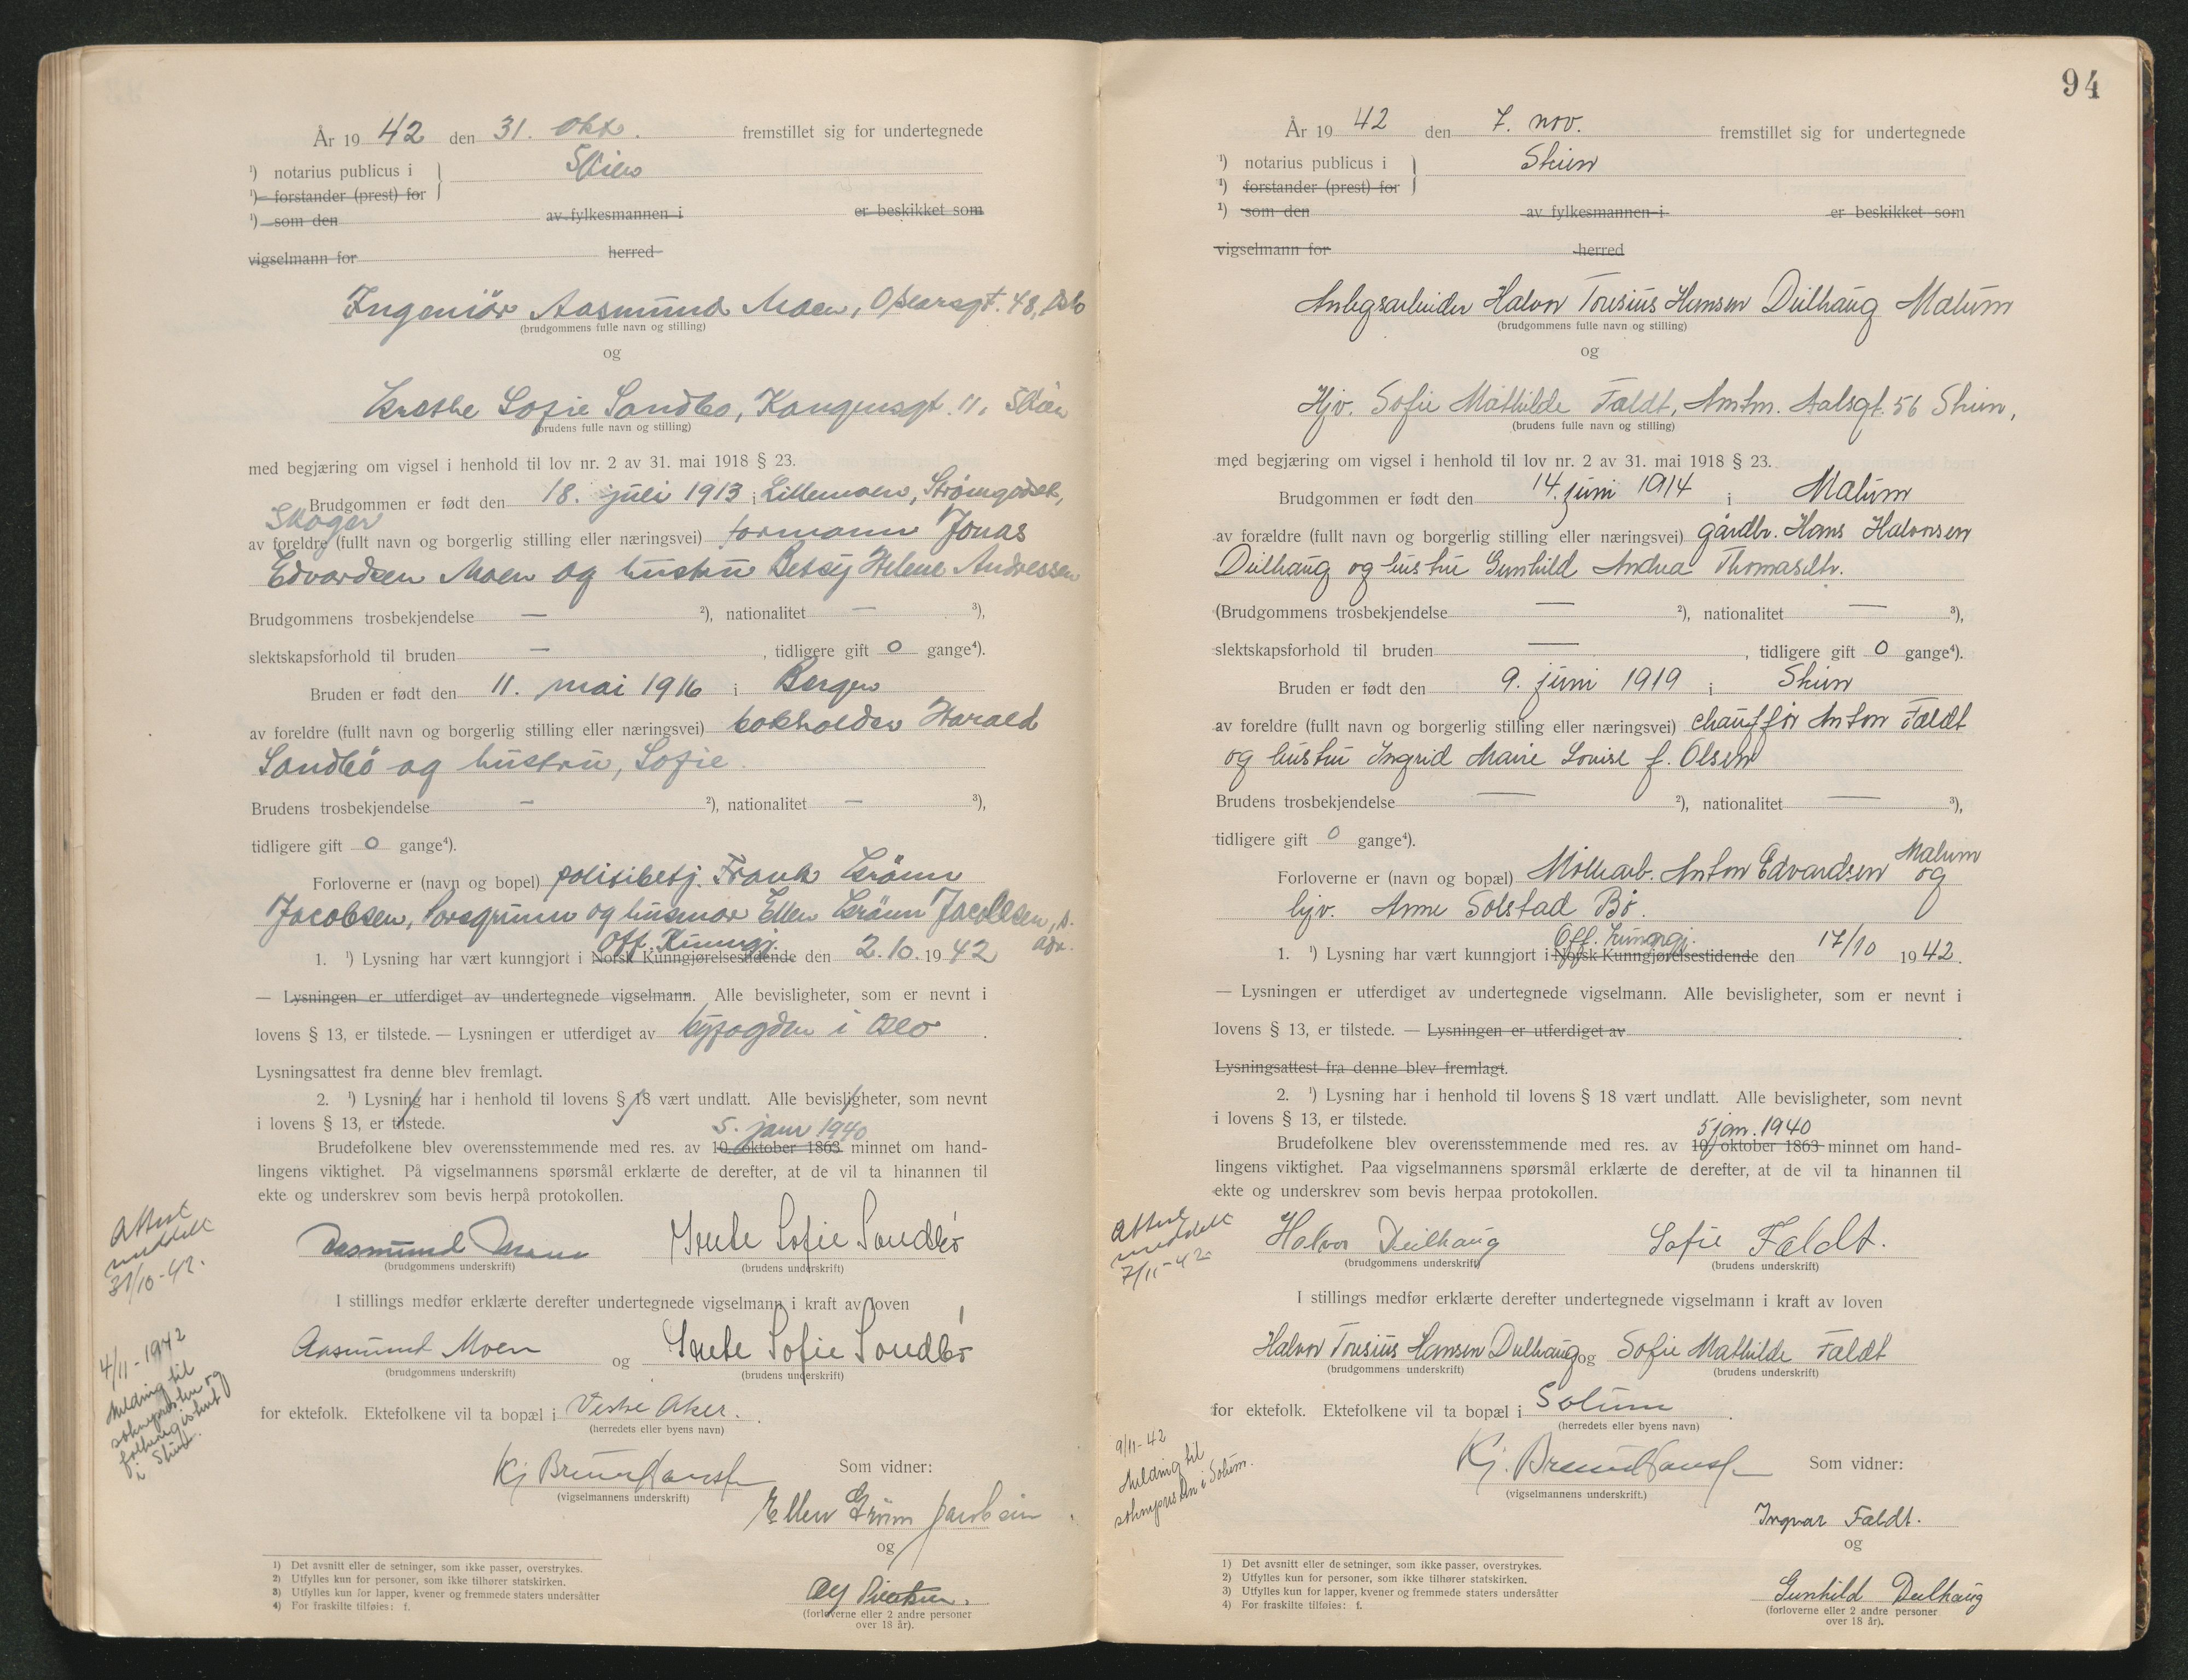 År 19 42 den 31. okt. fremstillet sig for undertegnede
¹) notarius publicus i } Skien
¹) forstander (prest) for
¹) som den av fylkesmannen i er beskikket som
vigselmann for herred
Ingeniör Aasmund Moen, Oscarsgt. 48, Oslo
(brudgommens fulle navn og stilling)
og
Grethe Sofie Sandbo, Kongensgt. 11, Skien
(brudens fulle navn og stilling)
med begjæring om vigsel i henhold til lov nr. 2 av 31. mai 1918 § 23.
Brudgommen er født den 18. juli 1913 i Lillemoen, Strømgodset,
Skoger
av foreldre (fullt navn og borgerlig stilling eller næringsvei) formann Jonas
Edvardsen Moen og hustru Betsy Helene Andressen
Brudgommens trosbekjendelse — ²), nationalitet — ³),
slektskapsforhold til bruden — , tidligere gift 0 gange⁴).
Bruden er født den 11. mai 1916 i Bergen
av foreldre (fullt navn og borgerlig stilling eller næringsvei) bokholder Harald
Sandbö og hustru, Sofie.
Brudens trosbekjendelse — ²), nationalitet — ³),
tidligere gift 0 gange⁴).
Forloverne er (navn og bopel) politibetj. Frank Grönn
Jacobsen, Porsgrunn og husmor Ellen Grönn Jacobsen, s.
adr.
Off. Kunngj.
1. ¹) Lysning har vært kunngjort i Norsk Kunngjørelsestidende den 2.10. 19 42
— Lysningen er utferdiget av undertegnede vigselmann. Alle bevisligheter, som er nevnt i
lovens § 13, er tilstede. — Lysningen er utferdiget av byfogden i Oslo .
Lysningsattest fra denne blev fremlagt.
2. ¹) Lysning har i henhold til lovens § 18 vært undlatt. Alle bevisligheter, som nevnt
i lovens § 13, er tilstede.
5. jan 1940
Brudefolkene blev overensstemmende med res. av 10. oktober 1863 minnet om hand-
lingens viktighet. På vigselmannens spørsmål erklærte de derefter, at de vil ta hinannen til
ekte og underskrev som bevis herpå protokollen.
Attest
meddelt
31/10-42.
Aasmund Moen Grete Sofie Sandbö
(brudgommens underskrift) (brudens underskrift)
I stillings medfør erklærte derefter undertegnede vigselmann i kraft av loven
Aasmund Moen og Grete Sofie Sandbö
(brudgommens underskrift) (brudens underskrift)
4/11-1942
Melding til
sokneprsten og
folkeregistret
i Skien.
for ektefolk. Ektefolkene vil ta bopæl i Vestre Aker.
(herredets eller byens navn)
Kj Bruun Hansen Som vidner:
(vigselmannens underskrift)
Ellen Grönn Jacobsen
og
(forloverne eller 2 andre personer
over 18 år).
1) Det avsnitt eller de setninger, som ikke passer, overstrykes.
2) Utfylles kun for personer, som ikke tilhører statskirken.
3) Utfylles kun for lapper, kvener og fremmede staters undersåtter
4) For fraskilte tilføies: f.
94
År 19 42 den 7. nov. fremstillet sig for undertegnede
¹) notarius publicus i } Skien
¹) forstander (prest) for
¹) som den av fylkesmannen i er beskikket som
vigselmann for herred
Anlegsarbeider Halvor Toresius Hansen Dulhaug Mælum
(brudgommens fulle navn og stilling)
og
Hjv. Sofie Mathilde Faldt, Amtm. Aalsgt. 56 Skien,
(brudens fulle navn og stilling)
med begjæring om vigsel i henhold til lov nr. 2 av 31. mai 1918 § 23.
Brudgommen er født den 14. juni 1914 i Mælum
av forældre (fullt navn og borgerlig stilling eller næringsvei) gårdbr. Hans Halvorsen
Dulhaug og hustru Gunhild Andrea Thomasdtr.
(Brudgommens trosbekjendelse — ²), nationalitet — ³),
slektskapsforhold til bruden — , tidligere gift 0 gange⁴).
Bruden er født den 9. juni 1919 i Skien
av foreldre (fullt navn og borgerlig stilling eller næringsvei) chauffør Anton Faldt
og hustru Ingrid Marie Lovise f. Olsen
Brudens trosbekjendelse — ²), nationalitet — ³),
tidligere gift 0 gange⁴).
Forloverne er (navn og bopæl) Møllearb. Anton Edvardsen Mælum og
hjv. Anne Solstad Bö.
Off. kunngj.
1. ¹) Lysning har vært kunngjort i Norsk Kunngjørelsestidende den 17/10 19 42.
— Lysningen er utferdiget av undertegnede vigselmann. Alle bevisligheter, som er nevnt i
lovens § 13, er tilstede. — Lysningen er utferdiget av .
Lysningsattest fra denne blev fremlagt.
2. ¹) Lysning har i henhold til lovens § 18 vært undlatt. Alle bevisligheter, som nevnt
i lovens § 13, er tilstede.
5 jan. 1940
Brudefolkene blev overensstemmende med res. av 10. oktober 1863 minnet om hand-
lingens viktighet. Paa vigselmannens spørsmål erklærte de derefter, at de vil ta hinannen til
ekte og underskrev som bevis herpaa protokollen.
Attest
meddelt
7/11-42
Halvor Dulhaug Sofie Faldt.
(brudgommens underskrift) (brudens underskrift)
I stillings medfør erklærte derefter undertegnede vigselmann i kraft av loven
Halvor Toresius Hansen Dulhaug og Sofie Mathilde Faldt
(brudgommens underskrift) (brudens underskrift)
for ektefolk. Ektefolkene vil ta bopæl i Solum .
(herredets eller byens navn)
9/11-42
Melding til
sokneprsten i Solum.
Kj. Bruun Hansen Som vidner:
(vigselmannens underskrift.)
Ingvar Faldt.
og
Gunhild Dulhaug
(forloverne eller 2 andre personer
over 18 år).
1) Det avsnitt eller de setninger, som ikke passer, overstrykes.
2) Utfylles kun for personer, som ikke tilhører statskirken.
3) Utfylles kun for lapper, kvener og fremmede staters undersåtter
4) For fraskilte tilføies: f.